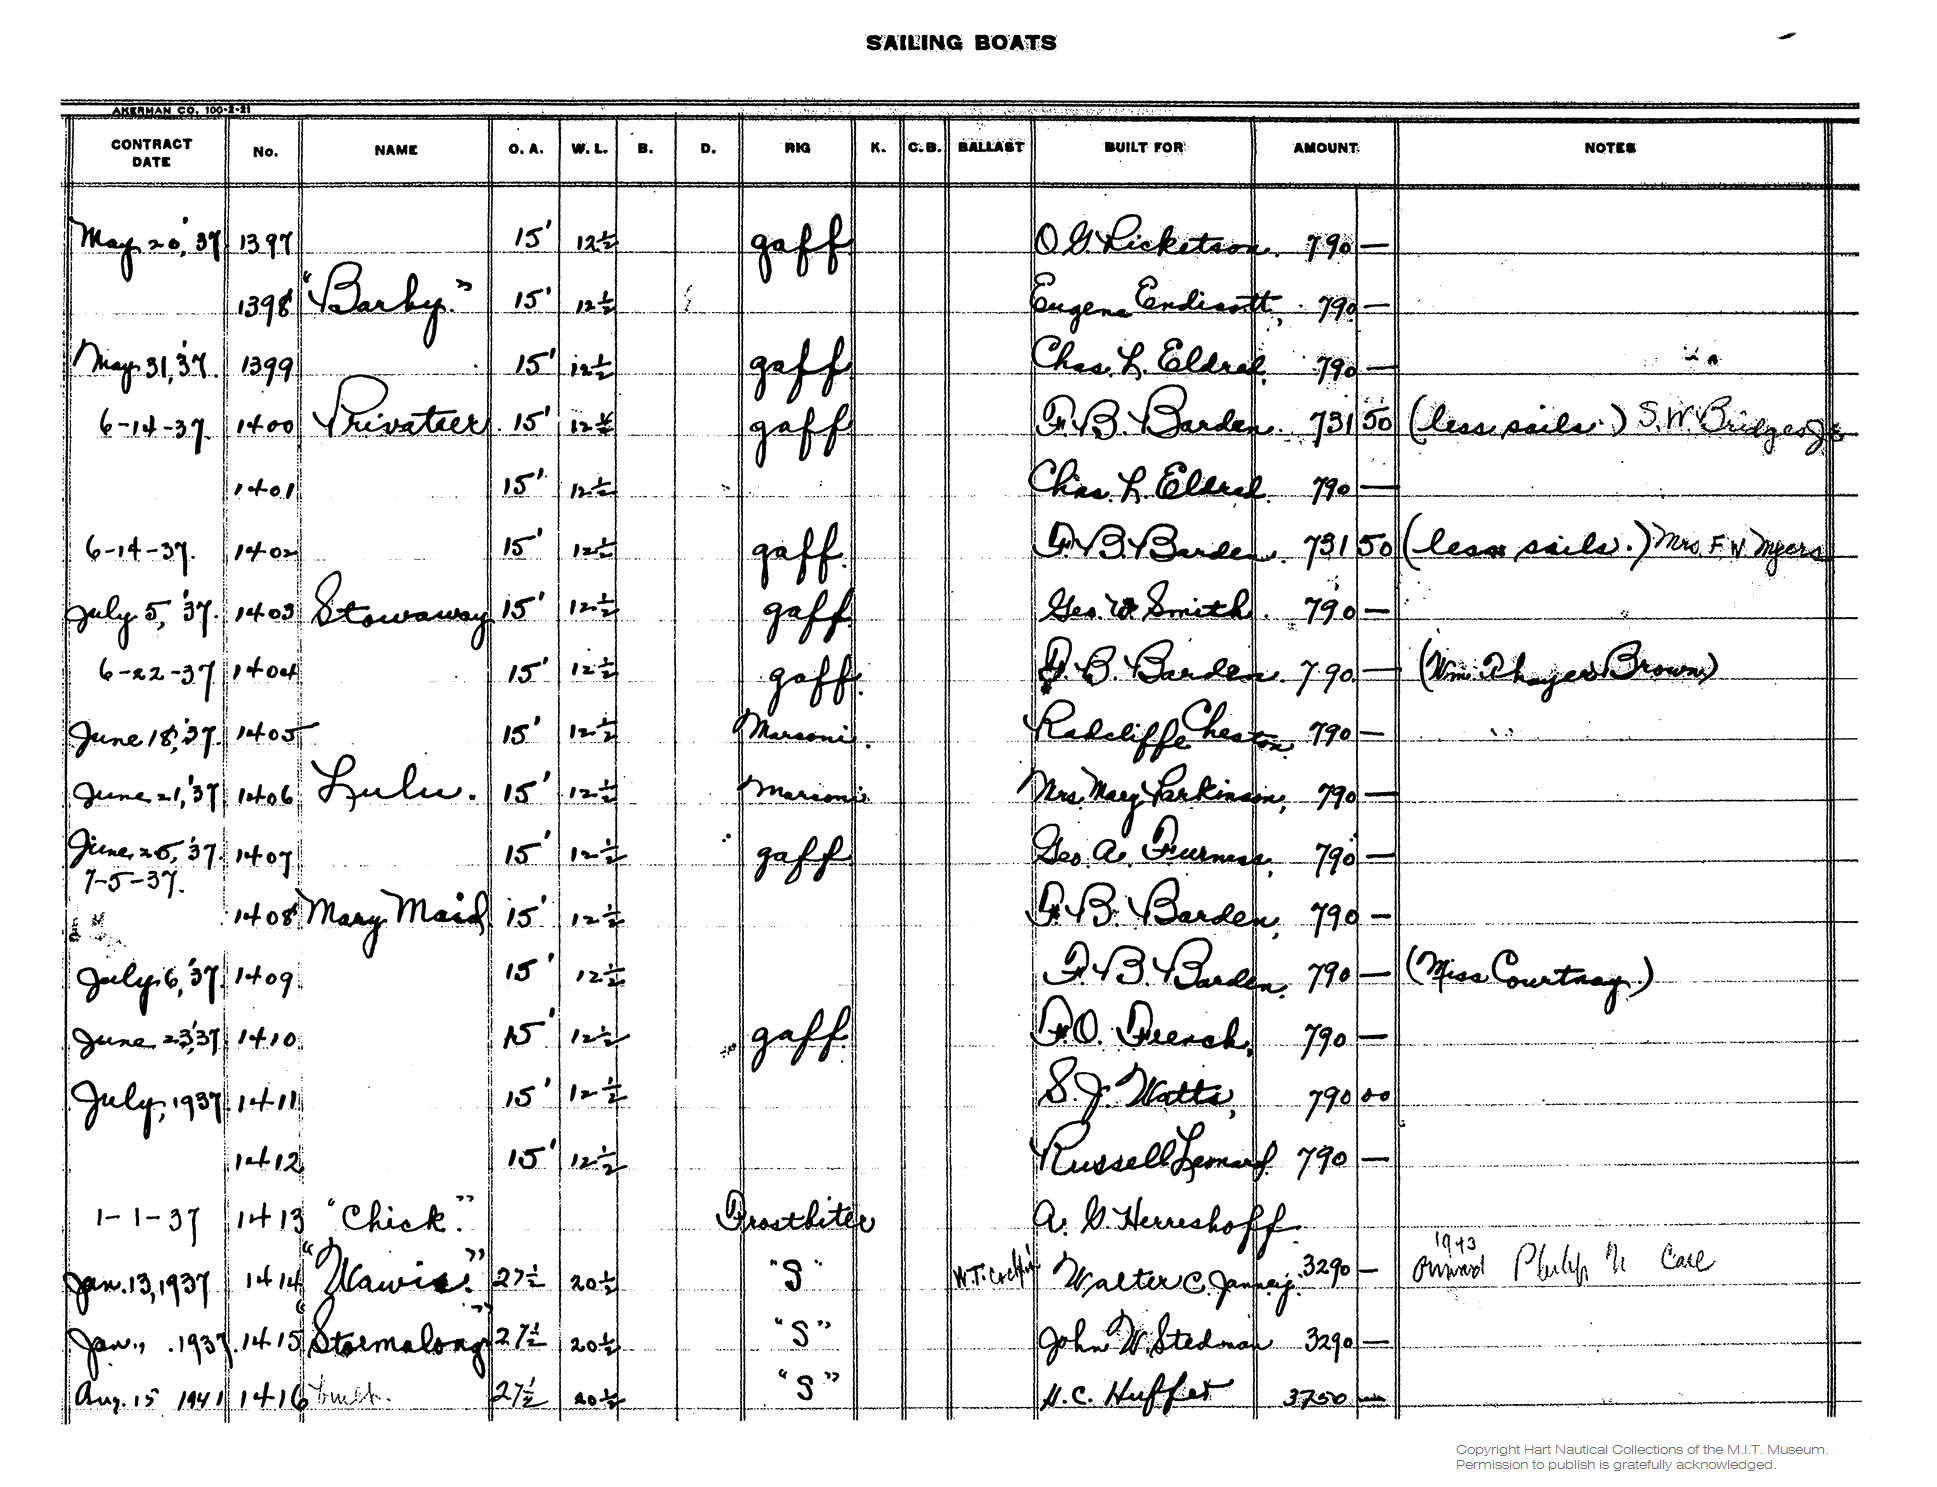 SAILING BOATS
AKERMAN CO. 100-2-21
CONTRACT DATE No. NAME O. A. W. L. B. D. RIG K. C.B. BALLAST BUILT FOR AMOUNT NOTES
May 20, '37 1397 15' 12½ gaff O. G. Ricketson. 790 —
1398 "Barby." 15' 12½ Eugene Endicott, 790 —
May 31, '37. 1399 15' 12½ gaff Chas. L. Eldred. 790 —
6-14-37. 1400 Privateer. 15' 12½ gaff F. B. Barden. 731 50 (less sails.) S. W. Bridges Jr
1401 15' 12½ Chas. L. Eldred. 790 —
6-14-37. 1402 15' 12½ gaff. F. B. Barden. 731 50 (less sails.) Mrs. F W Myers
July 5, '37. 1403 Stowaway 15' 12½ gaff. Geo. W. Smith. 790 —
6-22-37 1404 15' 12½ gaff. F. B. Barden. 790 — (Wm. Thayer Brown)
June 18, '37. 1405 15' 12½ Marconi. Radcliffe Cheston 790 —
June 21, '37 1406 Lulu. 15' 12½ Marconi. Mrs. Mary Parkinson, 790 —
June 25, '37. 1407 15' 12½ gaff Geo. A. Furness, 790 —
7-5-37.
1408 Mary Maid 15' 12½ F. B. Barden, 790 —
July 6, '37 1409 15' 12½ F. B. Barden. 790 — (Miss Courtnay.)
June 23, '37 1410 15' 12½ gaff. F. O. French, 790 —
July, 1937. 1411 15' 12½ S. J. Watts, 790 00
1412 15' 12½ Russell Leonard 790 —
1-1-37 1413 "Chick." Frostbiter A. G. Herreshoff.
Jan. 13, 1937 1414 27½ 20½ "S" W.T. Walter C. 3290 — 1943 Philip Case
Jan., 1937. 1415 "Stormalong" 27½ 20½ "S" John W. Stedman 3290 —
Aug. 15 1941 1416 built. 27½ 20½ "S" H. C. Huffer 3750 —
Copyright Hart Nautical Collections of the M.I.T. Museum.
Permission to publish is gratefully acknowledged.